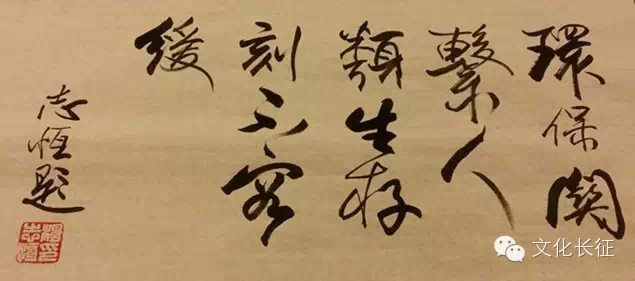 環保関
繫人
類生存
刻不容
緩
志恆題
文化长征